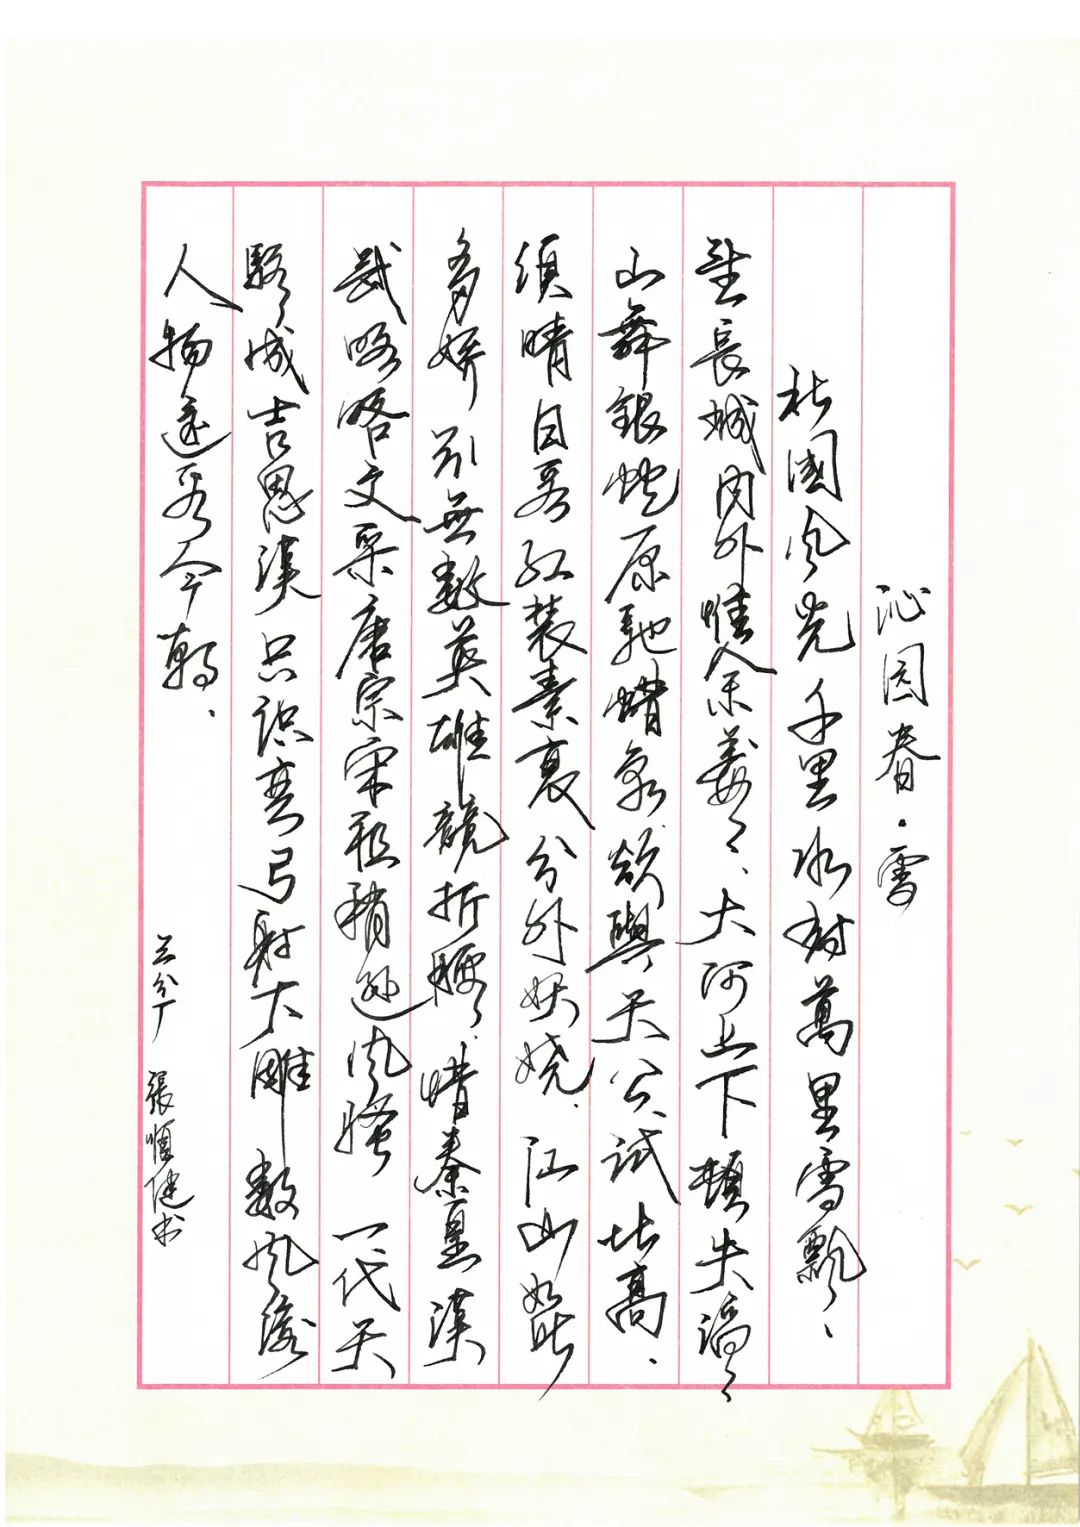 沁园春·雪
北國风光千里冰封萬里雪飘、
望長城内外惟余莽々、大河上下頓失滔々
山舞银蛇原驰蜡象欲與天公试比高.
须晴日看红装素裹分外妖娆.江山如此
多娇引無数英雄競折腰、惜秦皇漢
武略文采唐宗宋祖稍逊风骚一代天
骄成吉思漢只识弯弓射大雕数风流
人物还看今朝.
三分厂 張順健书